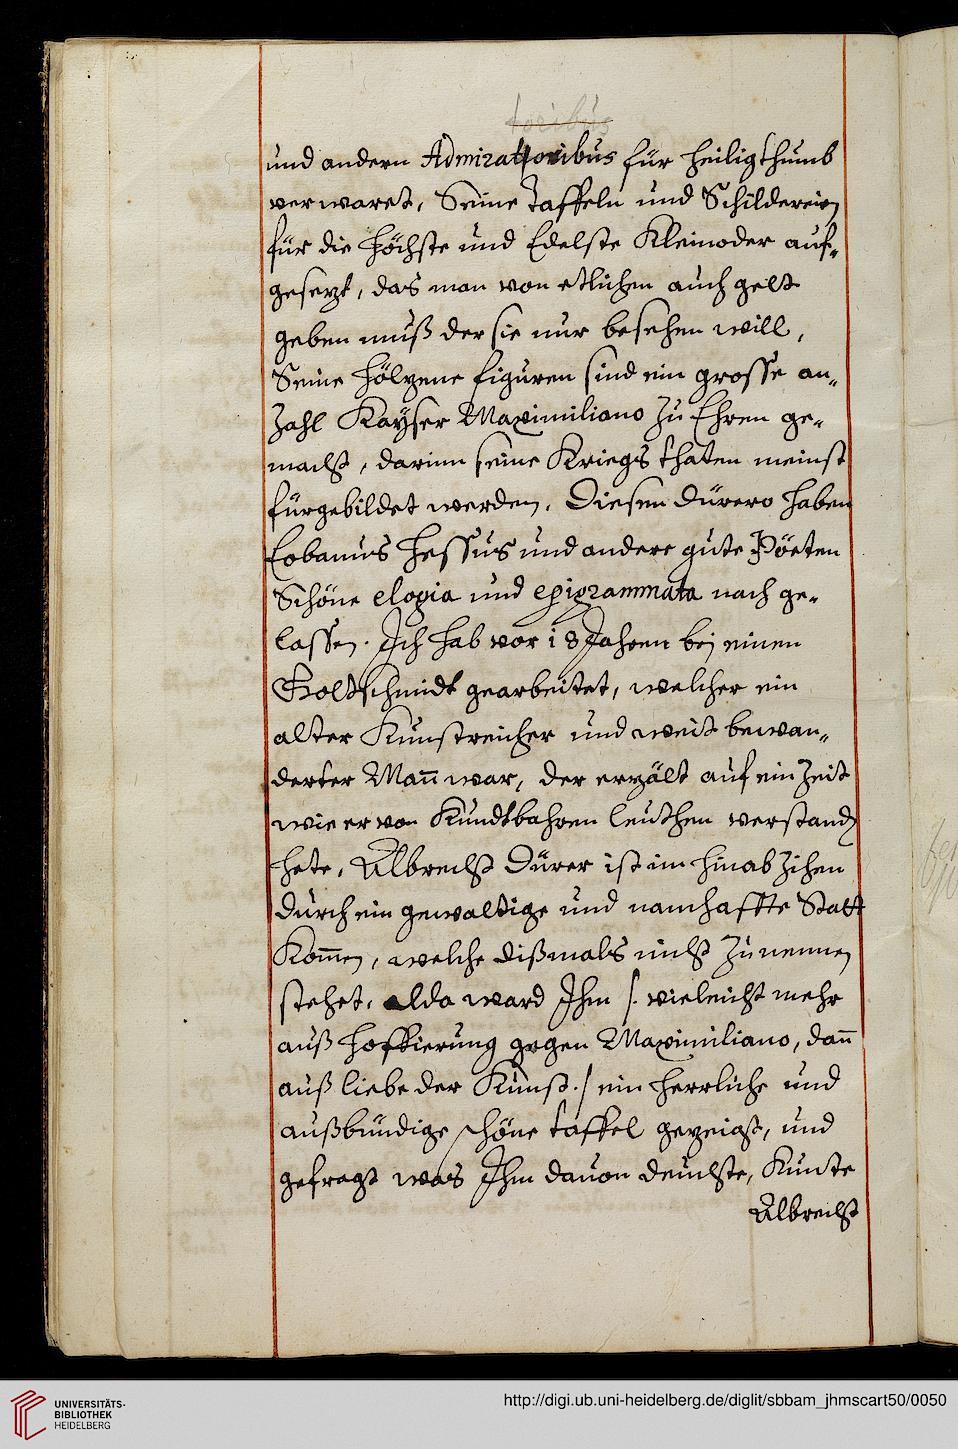 toribus
und andern Admiratoribus für heiligthumb
verwaret, Seine Taffeln und Schildereien
für die höchste und Edelste Kleinoder auf-
gesezt, das man von etlichen auch gelt
geben muß der sie nur besehen will,
Seine hölzene figuren sind ein grosse an-
Zahl Kayser Maximiliano zu Ehren ge-
macht, darinn seine Kriegs thaten meinst
fürgebildet werden. Diesen Dürero haben
Eobanus Hessus und andere gute Pöeten
Schöne elogia und epigrammata nach ge-
lassen. Ich hab vor 18 Jahren bei einen
Goltschmidt gearbeitet, welcher ein
alter Kunstreicher und weit bewan-
derter Mañ war, der erzält auf ein Zeit
wie er von Kundtbahren leuthen verstanden
hete, Albrecht Dürer ist im hinab Zihen
durch ein gewaltige und namhaffte Statt
Kom̃en, welche dißmals nicht zu nennen
stehet, Alda ward Ihm /: vieleicht mehr
auß hoffierung gegen Maximiliano, dañ
auß liebe der Kunst :/ ein herrliche und
außbündige schöne taffel gezeigt, und
gefragt was Ihm davon deuchte, Kunte
Albrecht
UNIVERSITÄTS-
BIBLIOTHEK
HEIDELBERG
http://digi.ub.uni-heidelberg.de/diglit/sbbam_jhmscart50/0050